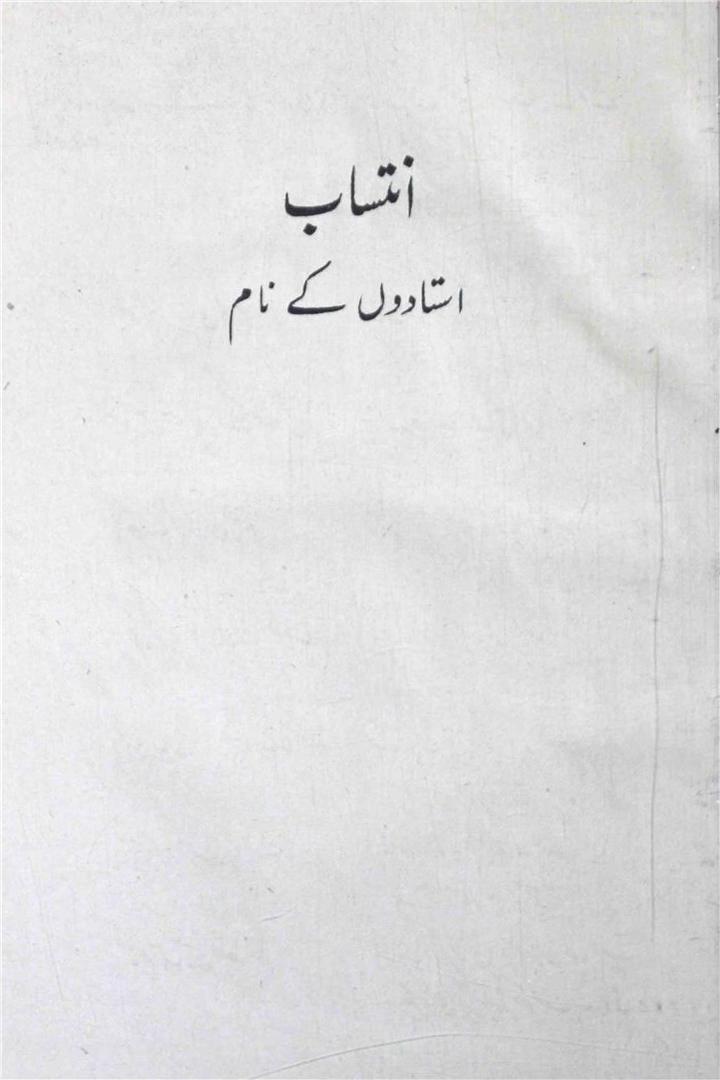 انتساب
استادوں کے نام